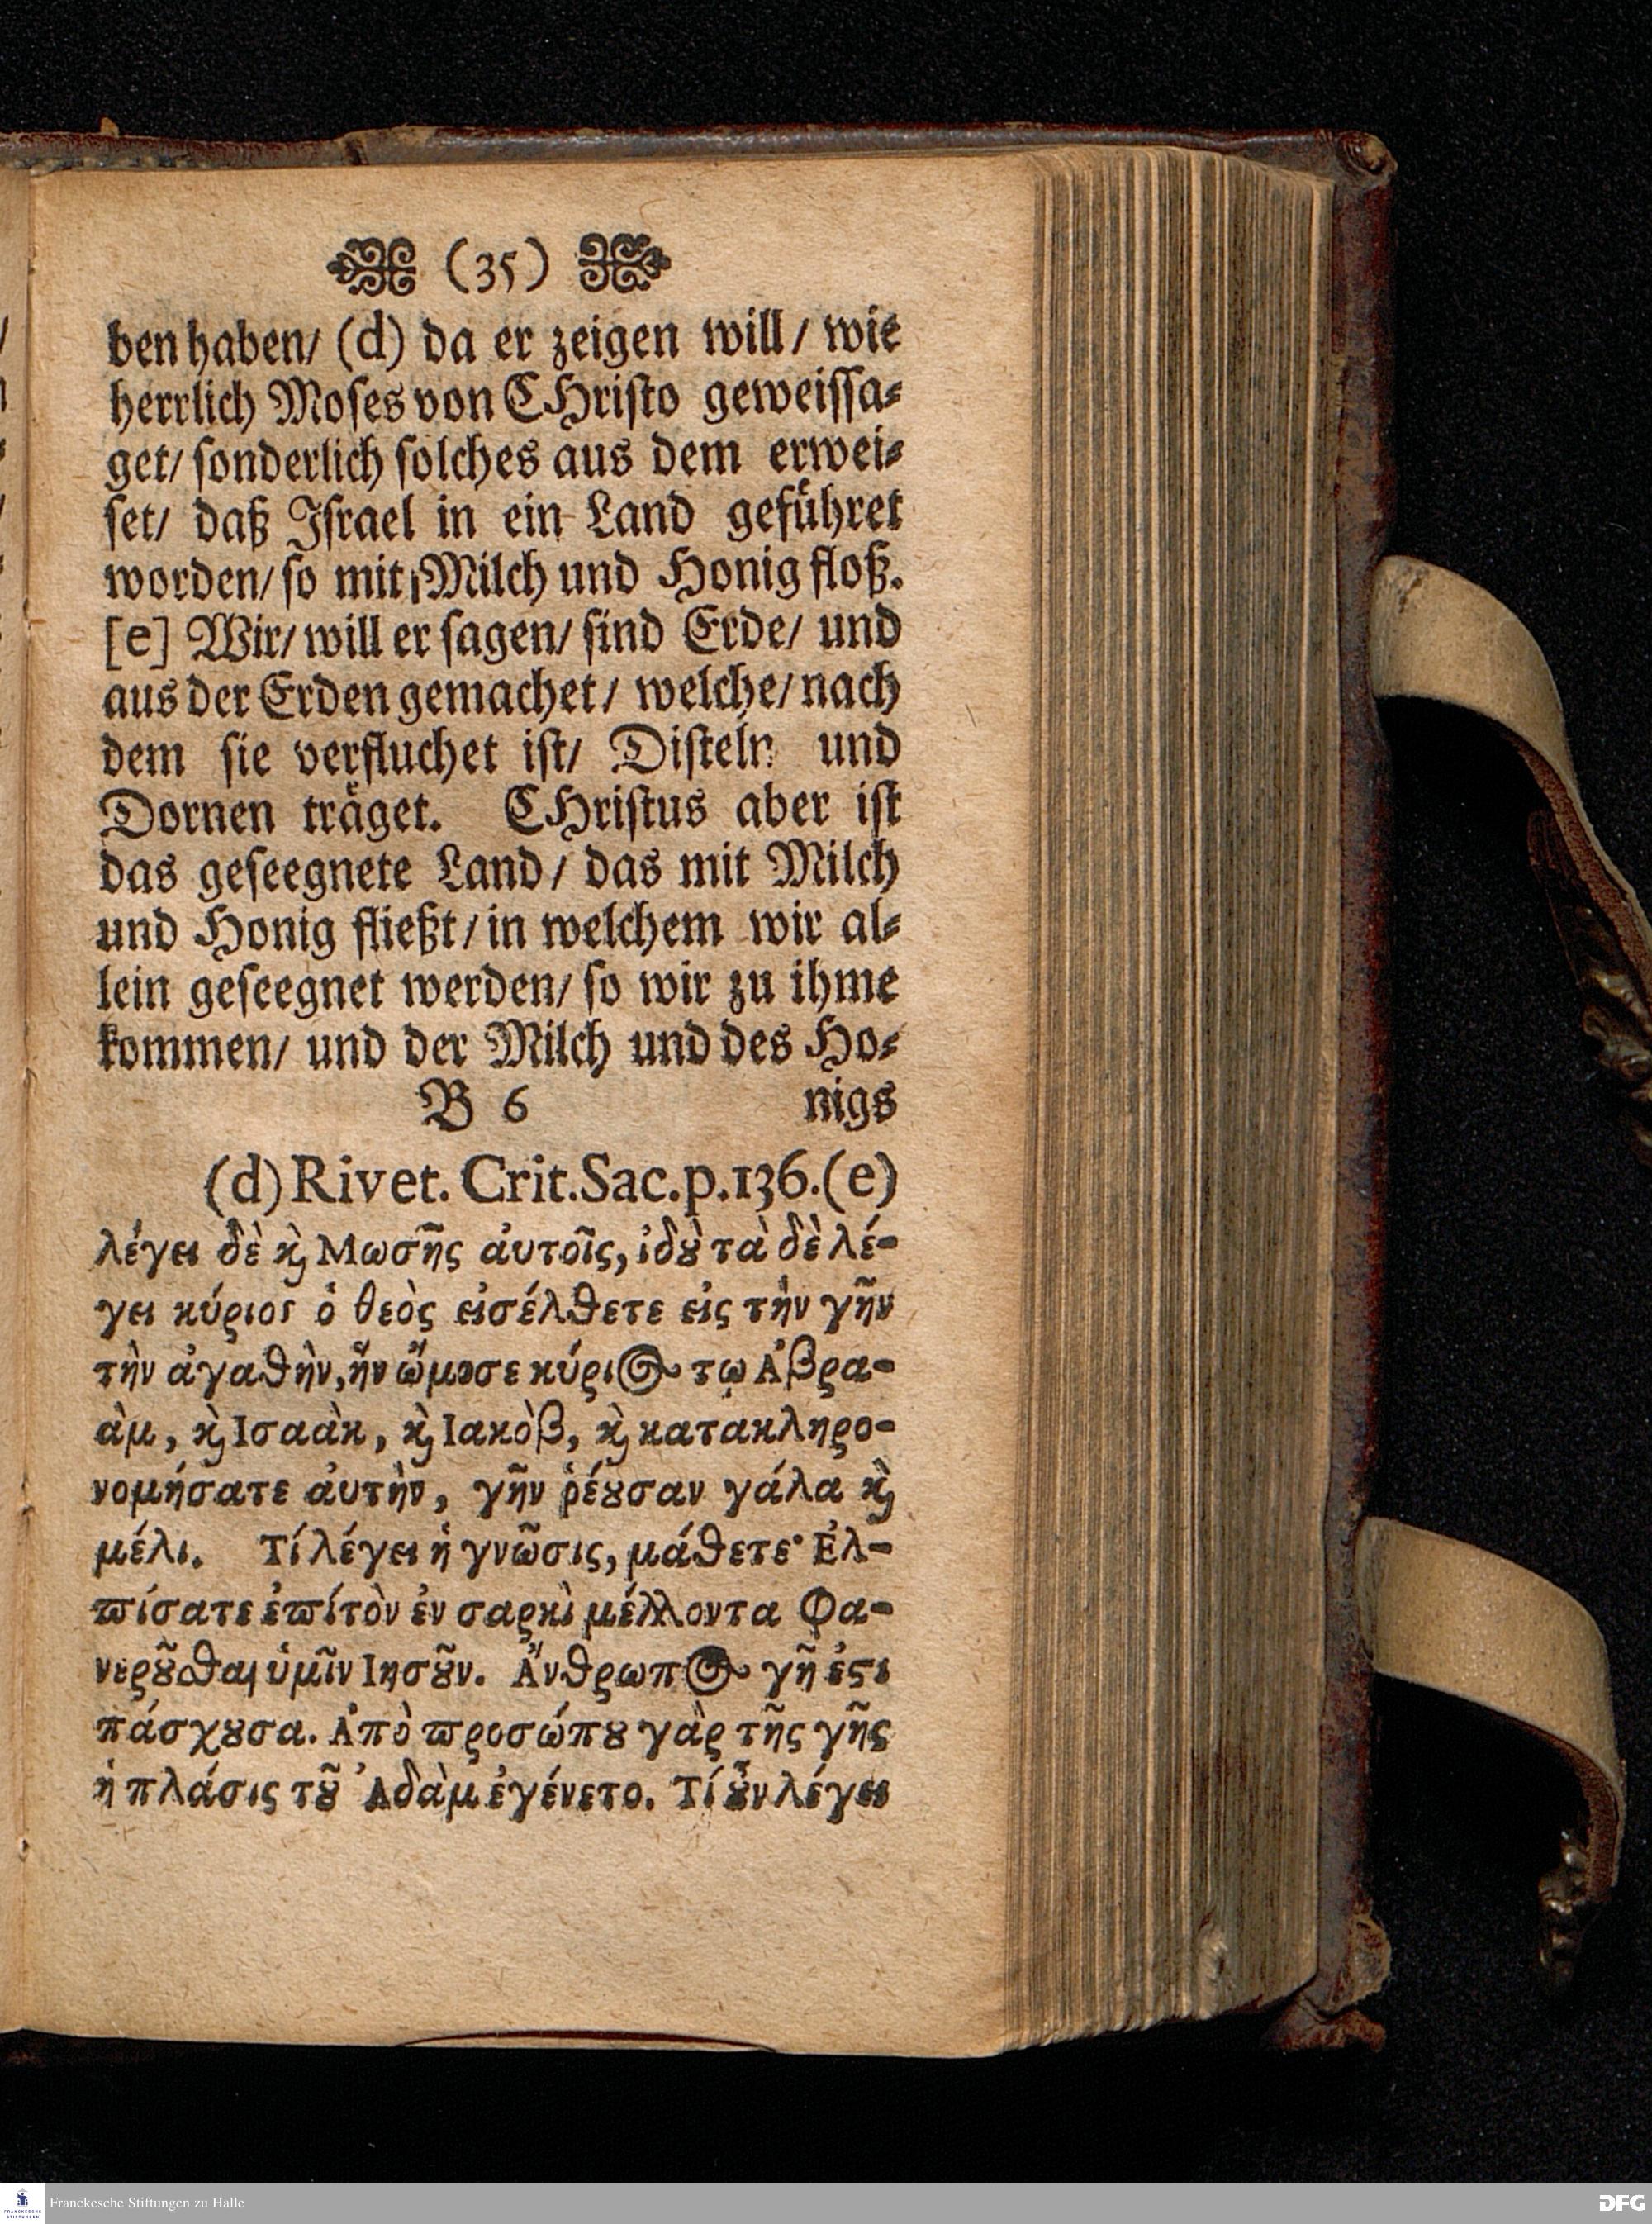 (35)
ben haben/ (d) da er zeigen will/ wie
herrlich Moſes von CHriſto geweiſſa⸗
get/ ſonderlich ſolches aus dem erwei⸗
ſet/ daß Iſrael in ein Land gefuͤhret
worden/ ſo mit Milch und Honig floß.
[e] Wir/ will er ſagen/ ſind Erde/ und
aus der Erden gemachet/ welche/ nach
dem ſie verfluchet iſt/ Diſteln und
Dornen traͤget. CHriſtus aber iſt
das geſeegnete Land/ das mit Milch
und Honig fließt/ in welchem wir al⸗
lein geſeegnet werden/ ſo wir zu ihme
kommen/ und der Milch und des Ho⸗
B 6 nigs
(d) Rivet. Crit. Sac. p. 136. (e)
λέγει δὲ ϗ̀ Μωσῆς ἀυτοῖς, ἰδȣ̀ τὰ δὲ λέ-
γει κύριος ὁ θεὸς εἰσέλθετε εἰς τὴν γῆν
τὴν ἀγαθὴν, ἥν ὤμοσε κύριος τῳ Ἀβρα-
ὰμ, ϗ̀ Ισαὰκ, ϗ̀ Ιακὸβ, ϗ̀ κατακληρο-
νομήσατε ἀυτὴν, γῆν ῥέȣσαν γάλα ϗ̀
μέλι. Τί λέγει ἡ γνῶσις, μάθετε· Ἐλ-
πίσατε ἐπίτὸν ἐν σαρκὶ μέλλοντα Φα-
νερȣ͂σθαι ὑμῖν Ιησȣ͂ν. Ἄνθρωπος γῆ ἐςι
πάσχȣσα. Ἀπὸ ϖροσώπȣ γὰρ τῆς γῆς
ἡ πλάσις τȣ͂ Ἀδὰμ ἐγένετο. Τί ȣ̓͂ν λέγει
Franckesche Stiftungen zu Halle
FRANCKESCHE STIFTUNGEN
DFG